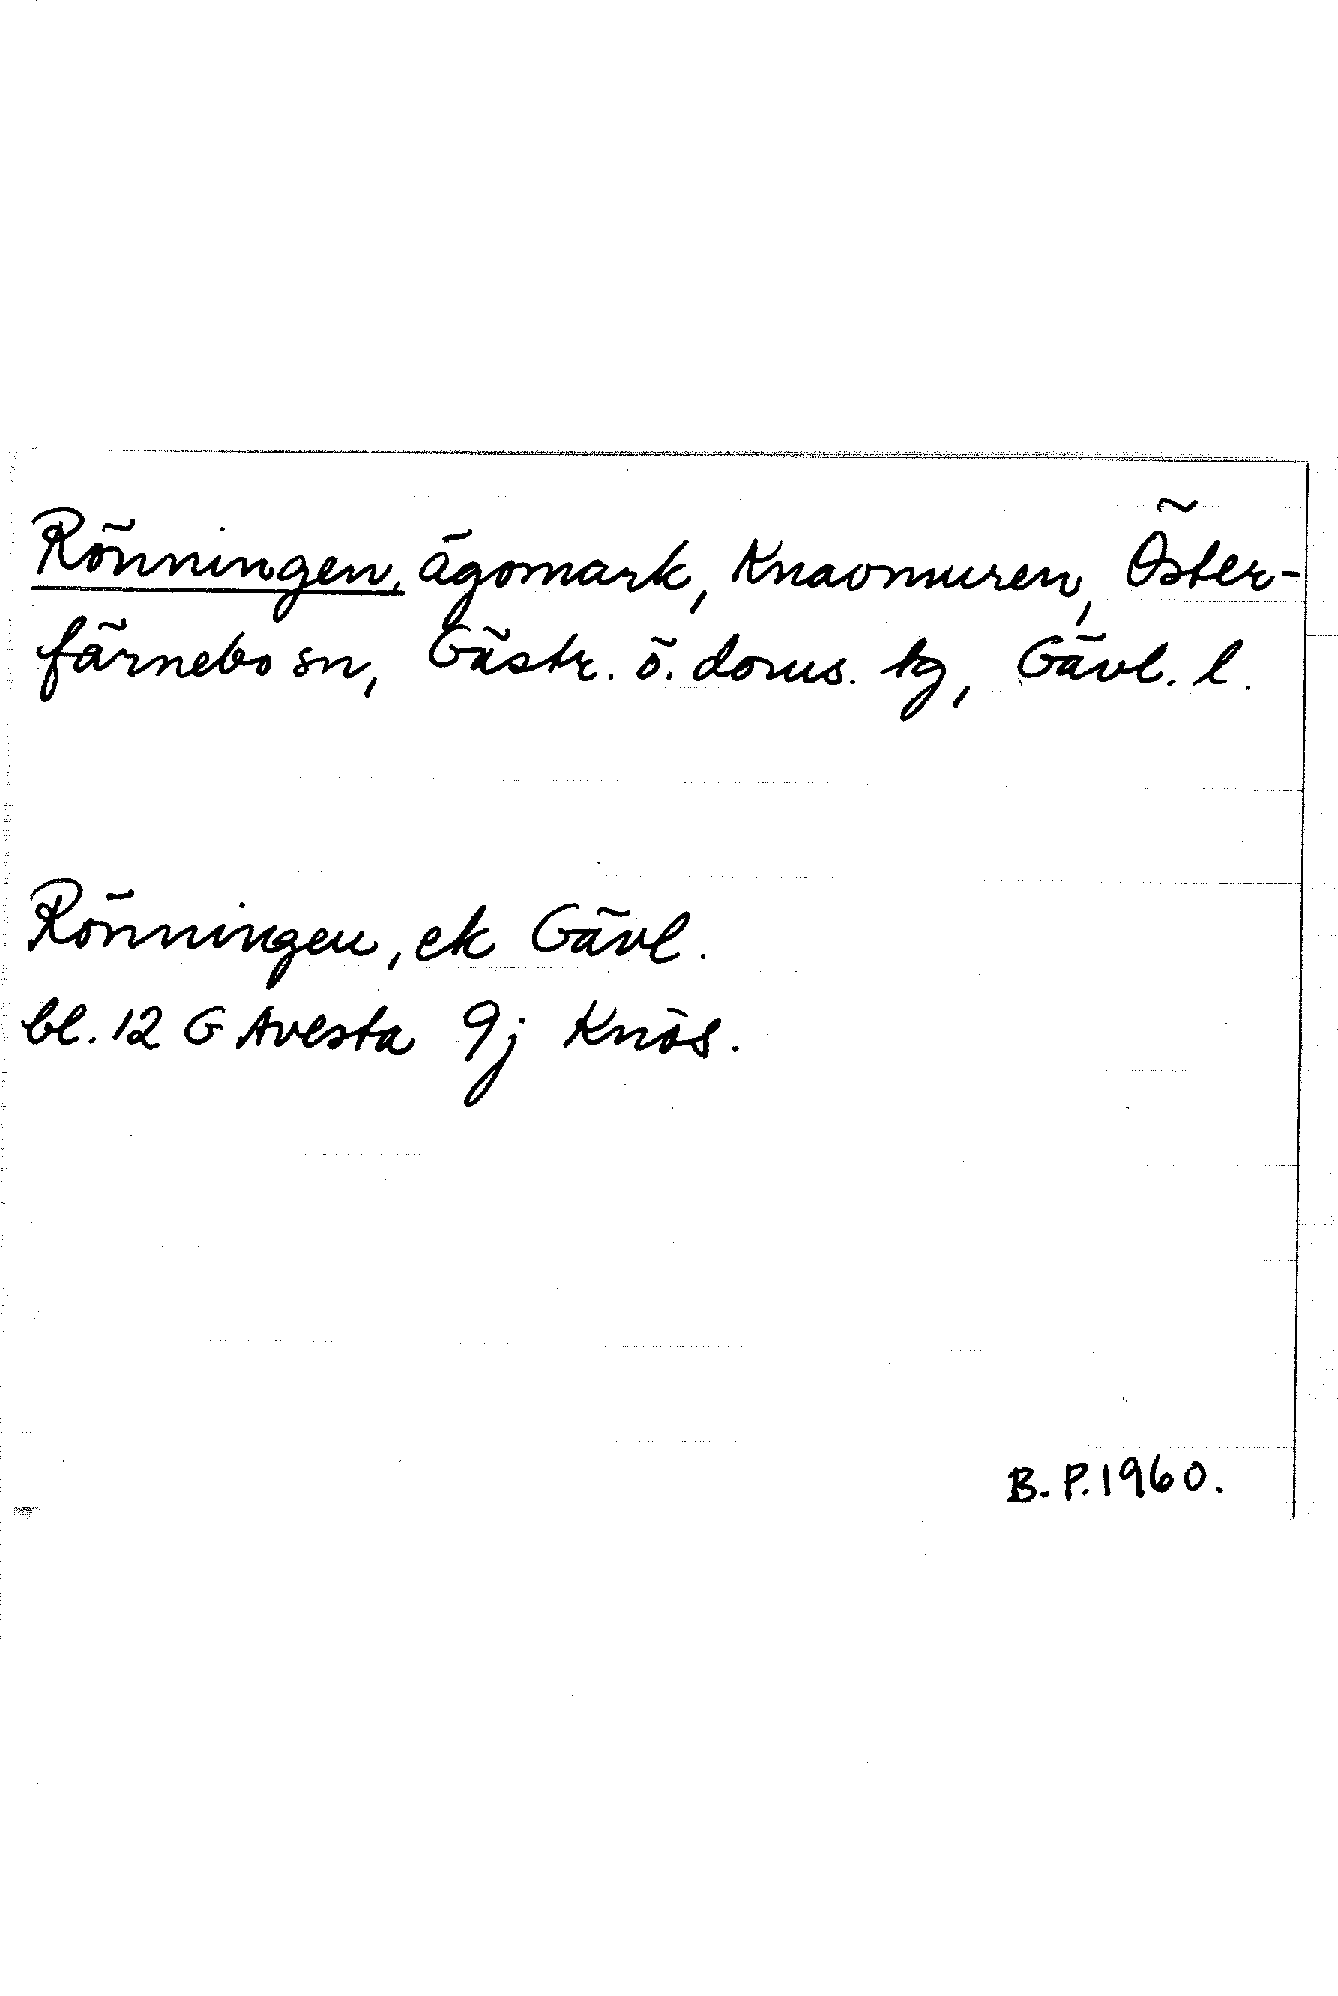 Rönningen, ägomark, Knaonmuren, Öster-
färnebo sn, Gästr. ö. doms. tg, Gävl. l.
Rönningen, ek Gävl.
bl. 12 G Avesta 9j Knös.
B. P. 1960.